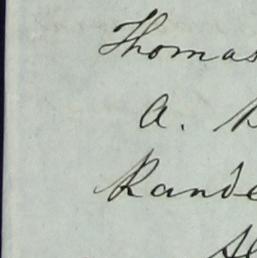 Thomas
A.
Rande